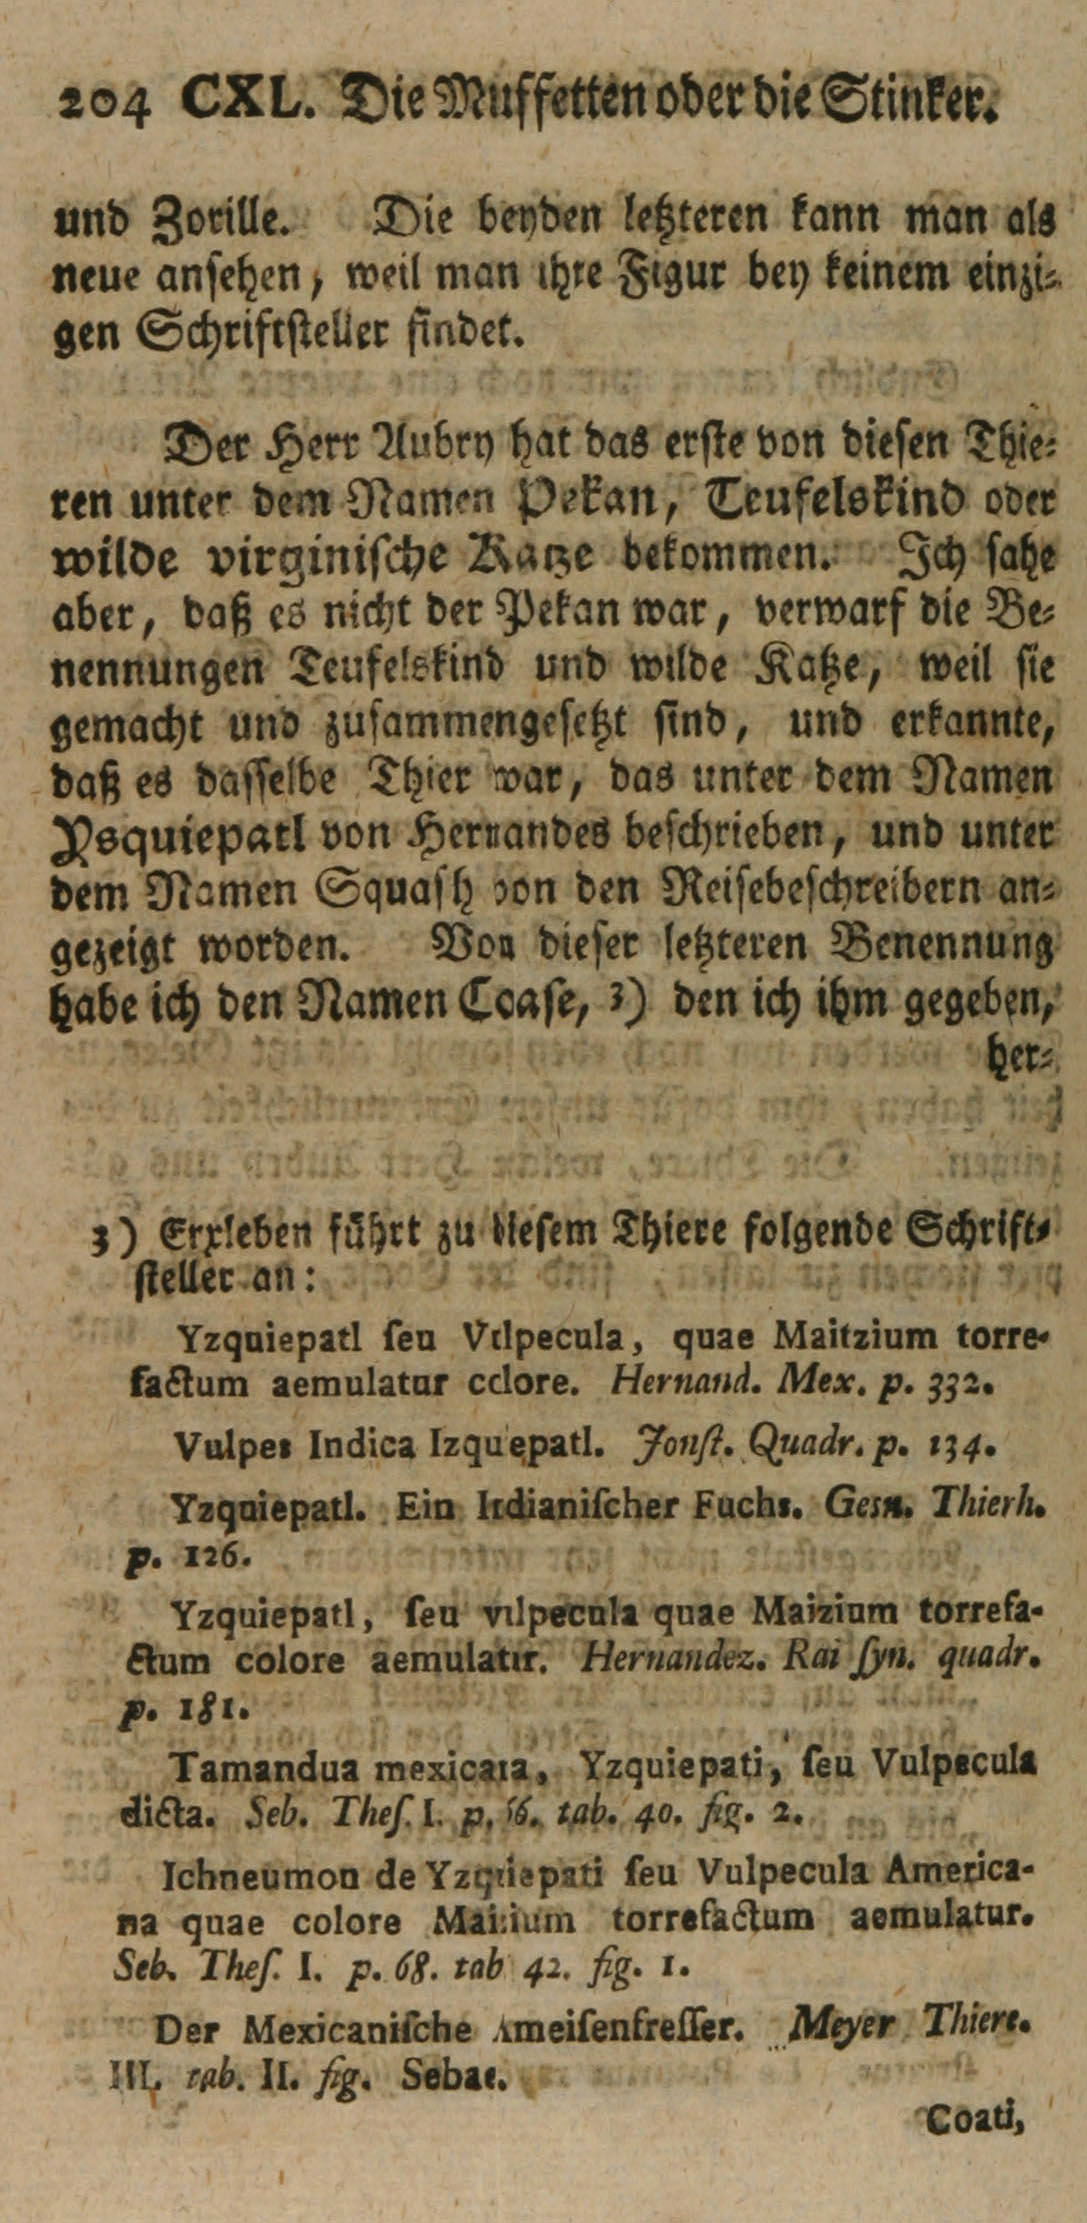 204 CXL. Die Muffetten oder die Stinker.
und Zorille. Die beyden letzteren kann man als
neue ansehen, weil man ihre Figur bey keinem einzi-
gen Schriftsteller findet.
Der Herr Aubry hat das erste von diesen Thie-
ren unter dem Namen Pekan, Teufelskind oder
wilde virginische Katze bekommen. Ich sahe
aber, daß es nicht der Pekan war, verwarf die Be-
nennungen Teufelskind und wilde Katze, weil sie
gemacht und zusammengesetzt sind, und erkannte,
daß es dasselbe Thier war, das unter dem Namen
Ysquiepatl von Hernandes beschrieben, und unter
dem Namen Squash von den Reisebeschreibern an-
gezeigt worden. Von dieser letzteren Benennung
habe ich den Namen Coase, 3) den ich ihm gegeben,
her-
3) Erxleben führt zu diesem Thiere folgende Schrift-
steller an:
Yzquiepatl ſeu Vulpecula, quae Maitzium torre-
factum aemulatur colore. Hernand. Mex. p. 332.
Vulpes Indica Izquiepatl. Jonſt. Quadr. p. 134.
Yzquiepatl. Ein Indianiſcher Fuchs. Gesn. Thierh.
p. 126.
Yzquiepatl, ſeu vulpecula quae Maizium torrefa-
ctum colore aemulatur. Hernandez. Rai ſyn. quadr.
p. 181.
Tamandua mexicana, Yzquiepati, ſeu Vulpecula
dicta. Seb. Theſ. I. p. 66. tab. 40. fig. 2.
Ichneumon de Yzquiepati ſeu Vulpecula America-
na quae colore Maizium torrefactum aemulatur.
Seb. Theſ. I. p. 68. tab 42. fig. 1.
Der Mexicaniſche Ameiſenfreſſer. Meyer Thiere.
III. tab. II. fig. Sebae.
Coati,